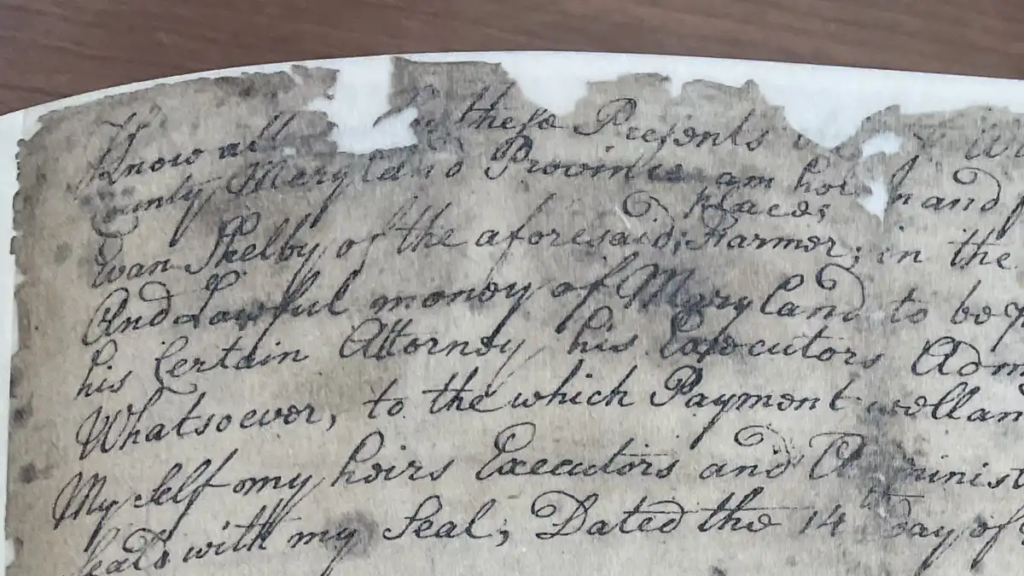 Know all these Presents
County Maryland Province am hol n and
Places
Evan Shelby of the aforesaid; Farmer; in the
And Lawful money of Maryland to be
his Certain Attorney, his Executors Adm
Whatsoever, to the which Payment
My self my heirs Executors and minist
Seals with my Seal; Dated the 14th Day of